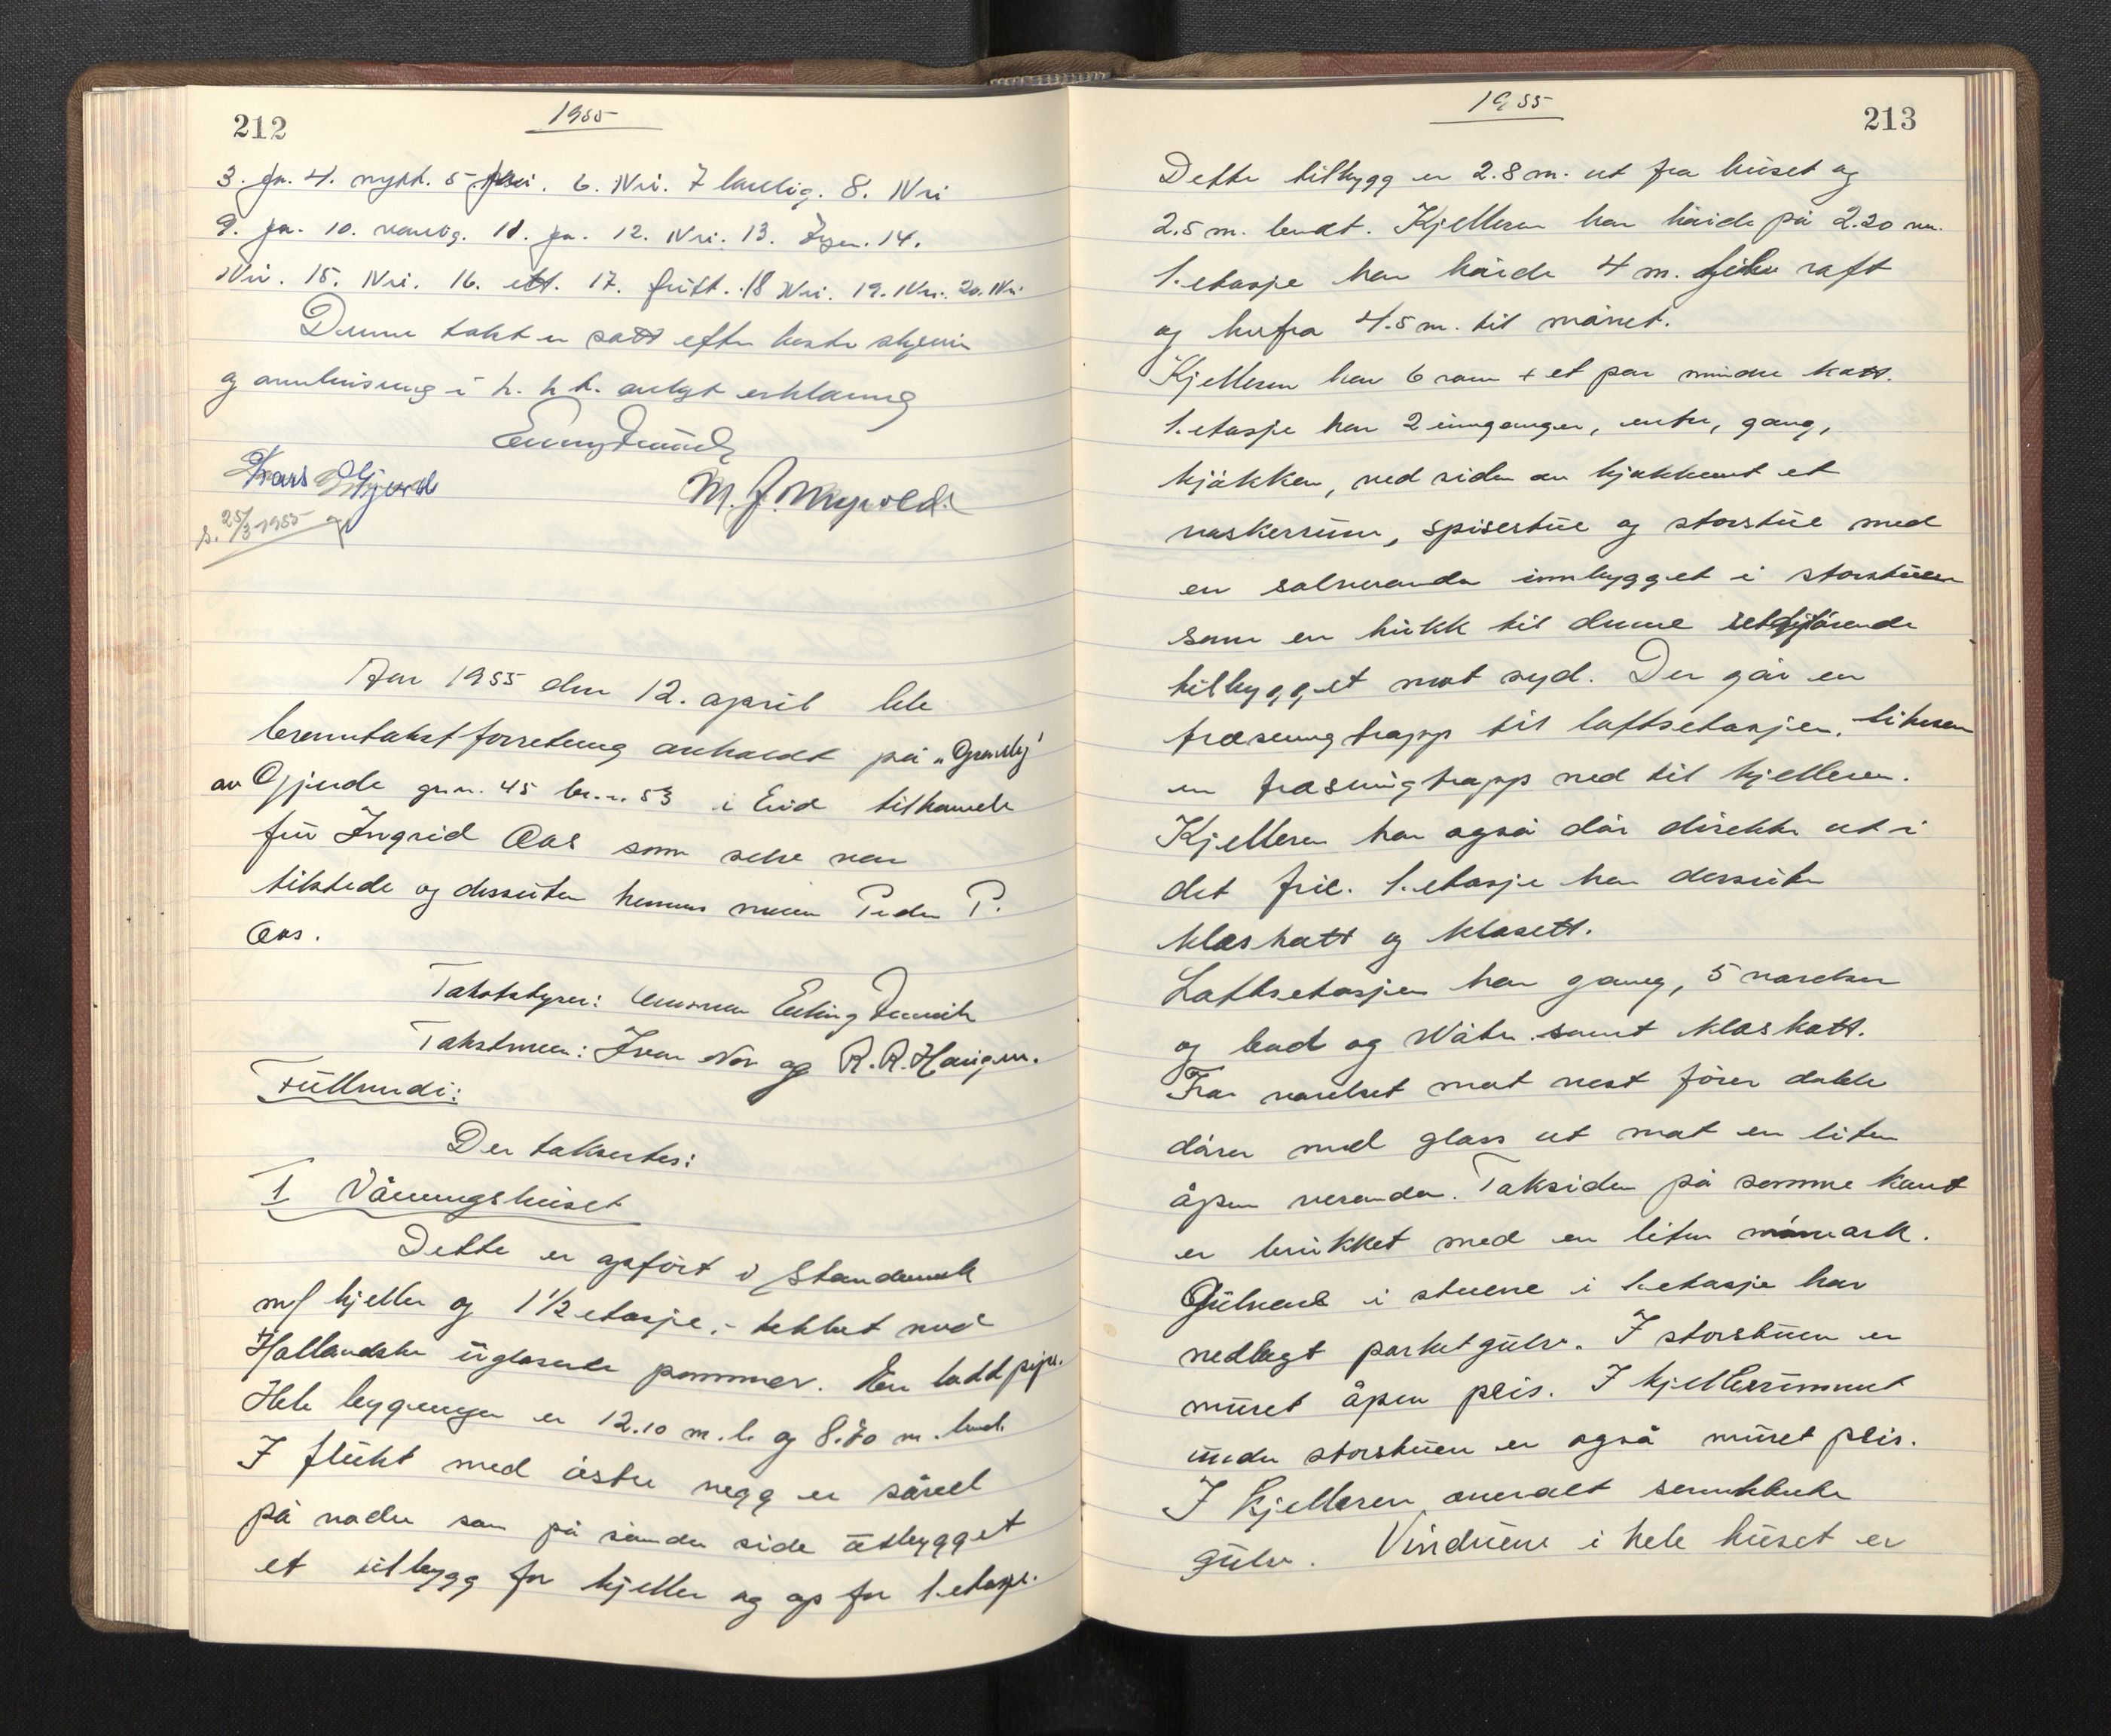 212
1955
3. Ja. 4. nytt. 5 Nei. 6. Nei. 7 lovlig. 8. Nei
9. Ja. 10. vanlig. 11. Ja. 12. Nei. 13. Ingen. 14.
Nei. 15. Nei. 16. ett. 17. fritt. 18 Nei. 19. Nei. 20. Nei
Denne takst er satt efter beste skjønn
og overbevisning i h. h. t. avlagt erklæring
Lars Gjerde
M. J. Myrvold.
s. 25/3-1955
Aar 1955 den 12. april ble
branntakstforretning avholdt på „Granly"
av Gjerde gr.nr. 45 br.nr. 53 i Eid tilhørende
fru Ingrid Aas som selv var
tilstede og dessuten hennes mann Peder P.
Aas.
Takstbestyrer: lensmann
Takstmenn: Ivar Nor og R. R. Haugen.
Fullmodi:
Der taksertes:
I Våningshuset
Dette er opført i Standerverk
m/ kjeller og 1 1/2 etasje, - tekket med
Hollandske uglaserte panner. En loddpipe.
Hele bygningen er 12.10 m. l. og 8.70 m. bred.
I flukt med østre vegg er såvel
på nordre som på søndre side utbygget
et tilbygg for kjeller og op for 1. etasje.
1955
213
Dette tilbygg er 2.8 m. ut fra huset og
2.5 m. bredt. Kjelleren har høide på 2.20 m.
1. etasje har høide 4 m. raft
og herfra 4.5 m. til mønet.
Kjelleren har 6 rom + et par mindre kott.
1. etasje har 2 innganger, entre, gang,
kjøkken, ved siden av kjøkkenet et
vaskerum, spisestue og storstue med
en solveranda innbygget i storstuen
som en hukk til denne
tilbygget mot syd. Der går en
trasvingtrapp til loftsetasjen, likesom
en trasvingtrapp ned til kjelleren.
Kjelleren har også dør direkte ut i
det frie. 1. etasje har dessuten
kleskott og klosett.
Loftsetasjen har gang, 5 værelser
og bad og Wåter samt kleskott.
Fra værelset mot vest fører doble
dører med glass ut mot en liten
åpen veranda. Taksiden på samme kant
er brukket med en liten ark.
Gulvene i stuene i 1. etasje har
nedlagt parketgulv. I storstuen er
muret åpen peis. I kjellerrummet
under storstuen er også muret peis.
I kjelleren overalt sementstøpte
gulv. Vinduene i hele huset er